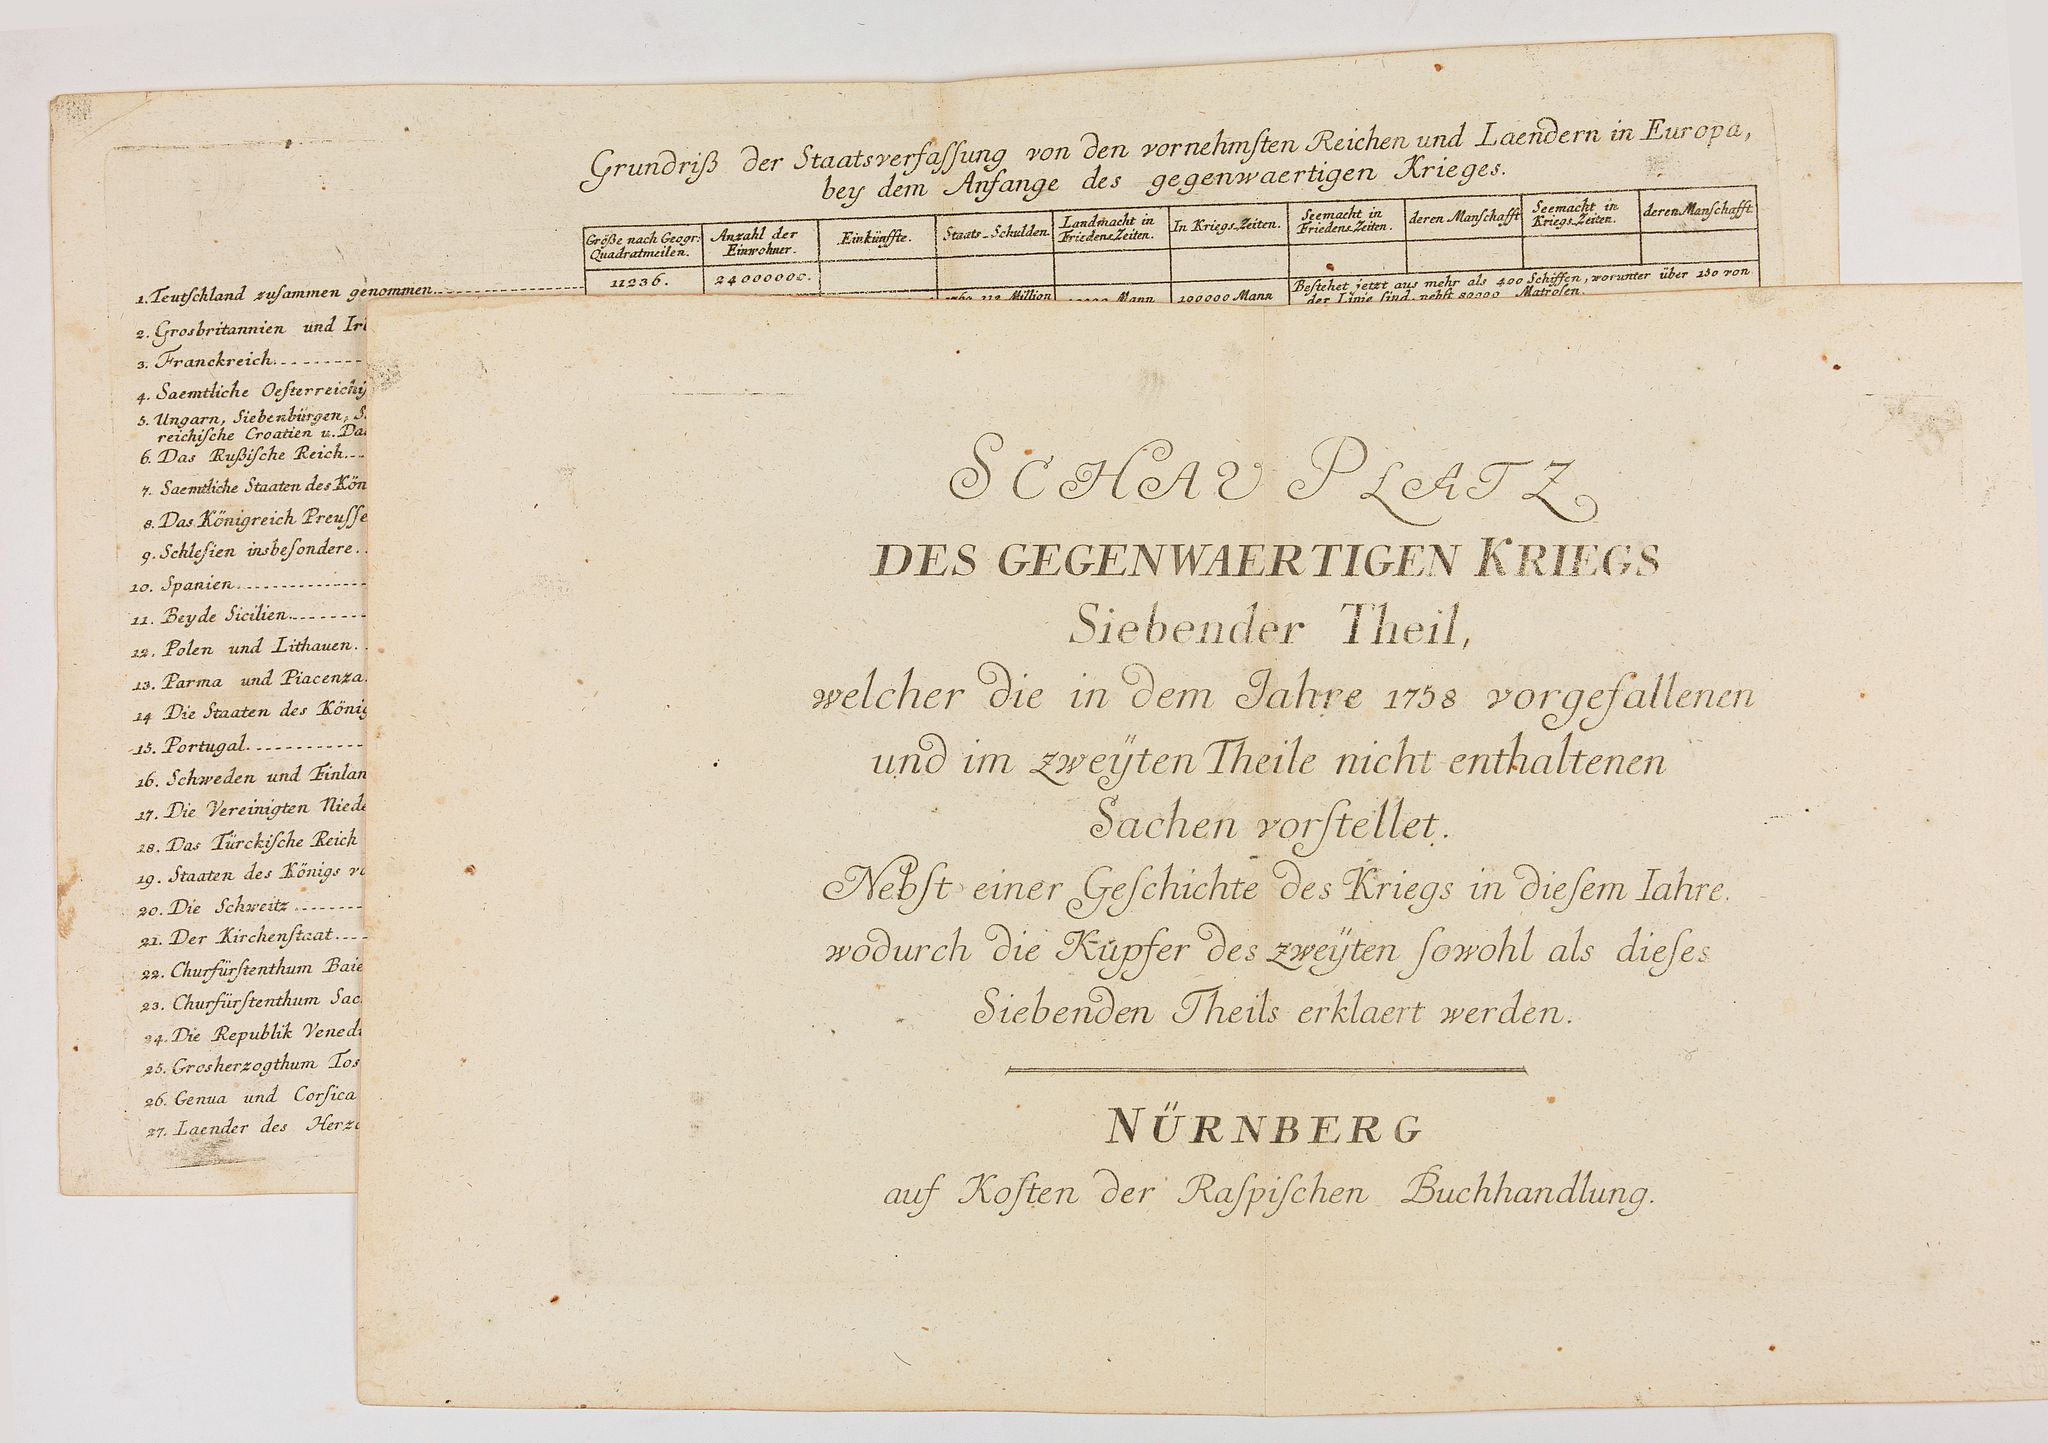 Grundriß der Staatsverfaſſung von den vornehmſten Reichen und Laendern in Europa,
bey dem Anfange des gegenwaertigen Krieges.
Größe nach Geogr: Quadratmeilen.
Anzahl der Einwohner.
Einkünffte.
Staats-Schulden
Landmacht in Friedens Zeiten.
In Kriegs-Zeiten.
Seemacht in Friedens Zeiten.
deren Manſchafft
Seemacht in Kriegs-Zeiten.
deren Manſchafft
1. Teutſchland zuſammen genommen 11236. 24000000.
Beſtehet jetzt aus mehr als 400 Schiffen, worunter über 150 von
der Linie ſind, nebſt 80000 Matroſen.
112 Million Mann 100000 Mann
2. Grosbritannien und Irl
3. Franckreich
4. Saemtliche Oeſterreichiſ
5. Ungarn, Siebenbürgen, S
reichiſche Croatien u. Dal
6. Das Rußiſche Reich
7. Saemtliche Staaten des Kön
8. Das Königreich Preuſſe
9. Schleſien insbeſondere
10. Spanien
11. Beyde Sicilien
12. Polen und Lithauen
13. Parma und Piacenza
14 Die Staaten des König
15. Portugal
16. Schweden und Finlan
17. Die Vereinigten Niede
18. Das Türckiſche Reich
19. Staaten des Königs vo
20. Die Schweitz
21. Der Kirchenſtaat
22. Churfürſtenthum Baie
23. Churfürſtenthum Sac
24. Die Republik Venedi
25. Grosherzogthum Tos
26. Genua und Corſica
27. Laender des Herzo
SCHAU PLATZ
DES GEGENWAERTIGEN KRIEGS
Siebender Theil,
welcher die in dem Jahre 1758 vorgefallenen
und im zweÿten Theile nicht enthaltenen
Sachen vorſtellet.
Nebſt einer Geſchichte des Kriegs in dieſem Iahre.
wodurch die Kupfer des zweÿten ſowohl als dieſes
Siebenden Theils erklaert werden.
NÜRNBERG
auf Koſten der Raſpiſchen Buchhandlung.